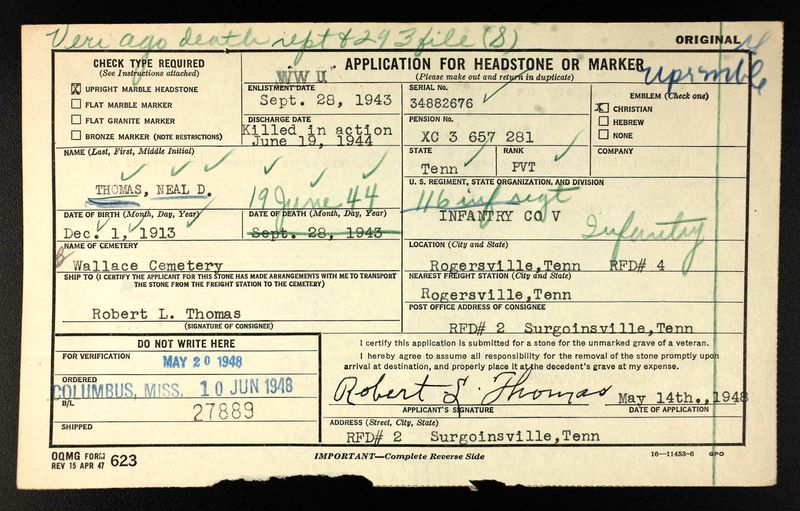 Veri ago death rept & 293 file (S)
ORIGINAL
CHECK TYPE REQUIRED
(See Instructions attached)
X UPRIGHT MARBLE HEADSTONE
FLAT MARBLE MARKER
FLAT GRANITE MARKER
BRONZE MARKER (NOTE RESTRICTIONS)
WW II
APPLICATION FOR HEADSTONE OR MARKER
(Please make out and return in duplicate)
ENLISTMENT DATE
Sept. 28, 1943
DISCHARGE DATE
Killed in action
June 19, 1944
SERIAL No.
34882676
PENSION No.
XC 3 657 281
EMBLEM (Check one)
X CHRISTIAN
HEBREW
NONE
NAME (Last, First, Middle Initial)
THOMAS, NEAL D.
19 June 44
STATE
Tenn
RANK
PVT
COMPANY
U. S. REGIMENT, STATE ORGANIZATION, AND DIVISION
116 inf regt
INFANTRY CO V
Infantry
DATE OF BIRTH (Month, Day, Year)
Dec. 1, 1913
DATE OF DEATH (Month, Day, Year)
Sept. 28, 1943
NAME OF CEMETERY
Wallace Cemetery
LOCATION (City and State)
Rogersville,Tenn RFD# 4
SHIP TO (I CERTIFY THE APPLICANT FOR THIS STONE HAS MADE ARRANGEMENTS WITH ME TO TRANSPORT
THE STONE FROM THE FREIGHT STATION TO THE CEMETERY)
NEAREST FREIGHT STATION (City and State)
Rogersville,Tenn
Robert L. Thomas
(SIGNATURE OF CONSIGNEE)
POST OFFICE ADDRESS OF CONSIGNEE
RFD# 2 Surgoinsville,Tenn
DO NOT WRITE HERE
FOR VERIFICATION
MAY 20 1948
ORDERED
COLUMBUS, MISS. 10 JUN 1948
B/L
27889
SHIPPED
I certify this application is submitted for a stone for the unmarked grave of a veteran.
I hereby agree to assume all responsibility for the removal of the stone promptly upon
arrival at destination, and properly place it at the decedent's grave at my expense.
Robert L. Thomas May 14th.,1948
APPLICANT'S SIGNATURE
DATE OF APPLICATION
ADDRESS (Street, City, State)
RFD# 2 Surgoinsville,Tenn
OQMG FORM
REV 15 APR 47 623
IMPORTANT—Complete Reverse Side
16—11453-6 GPO